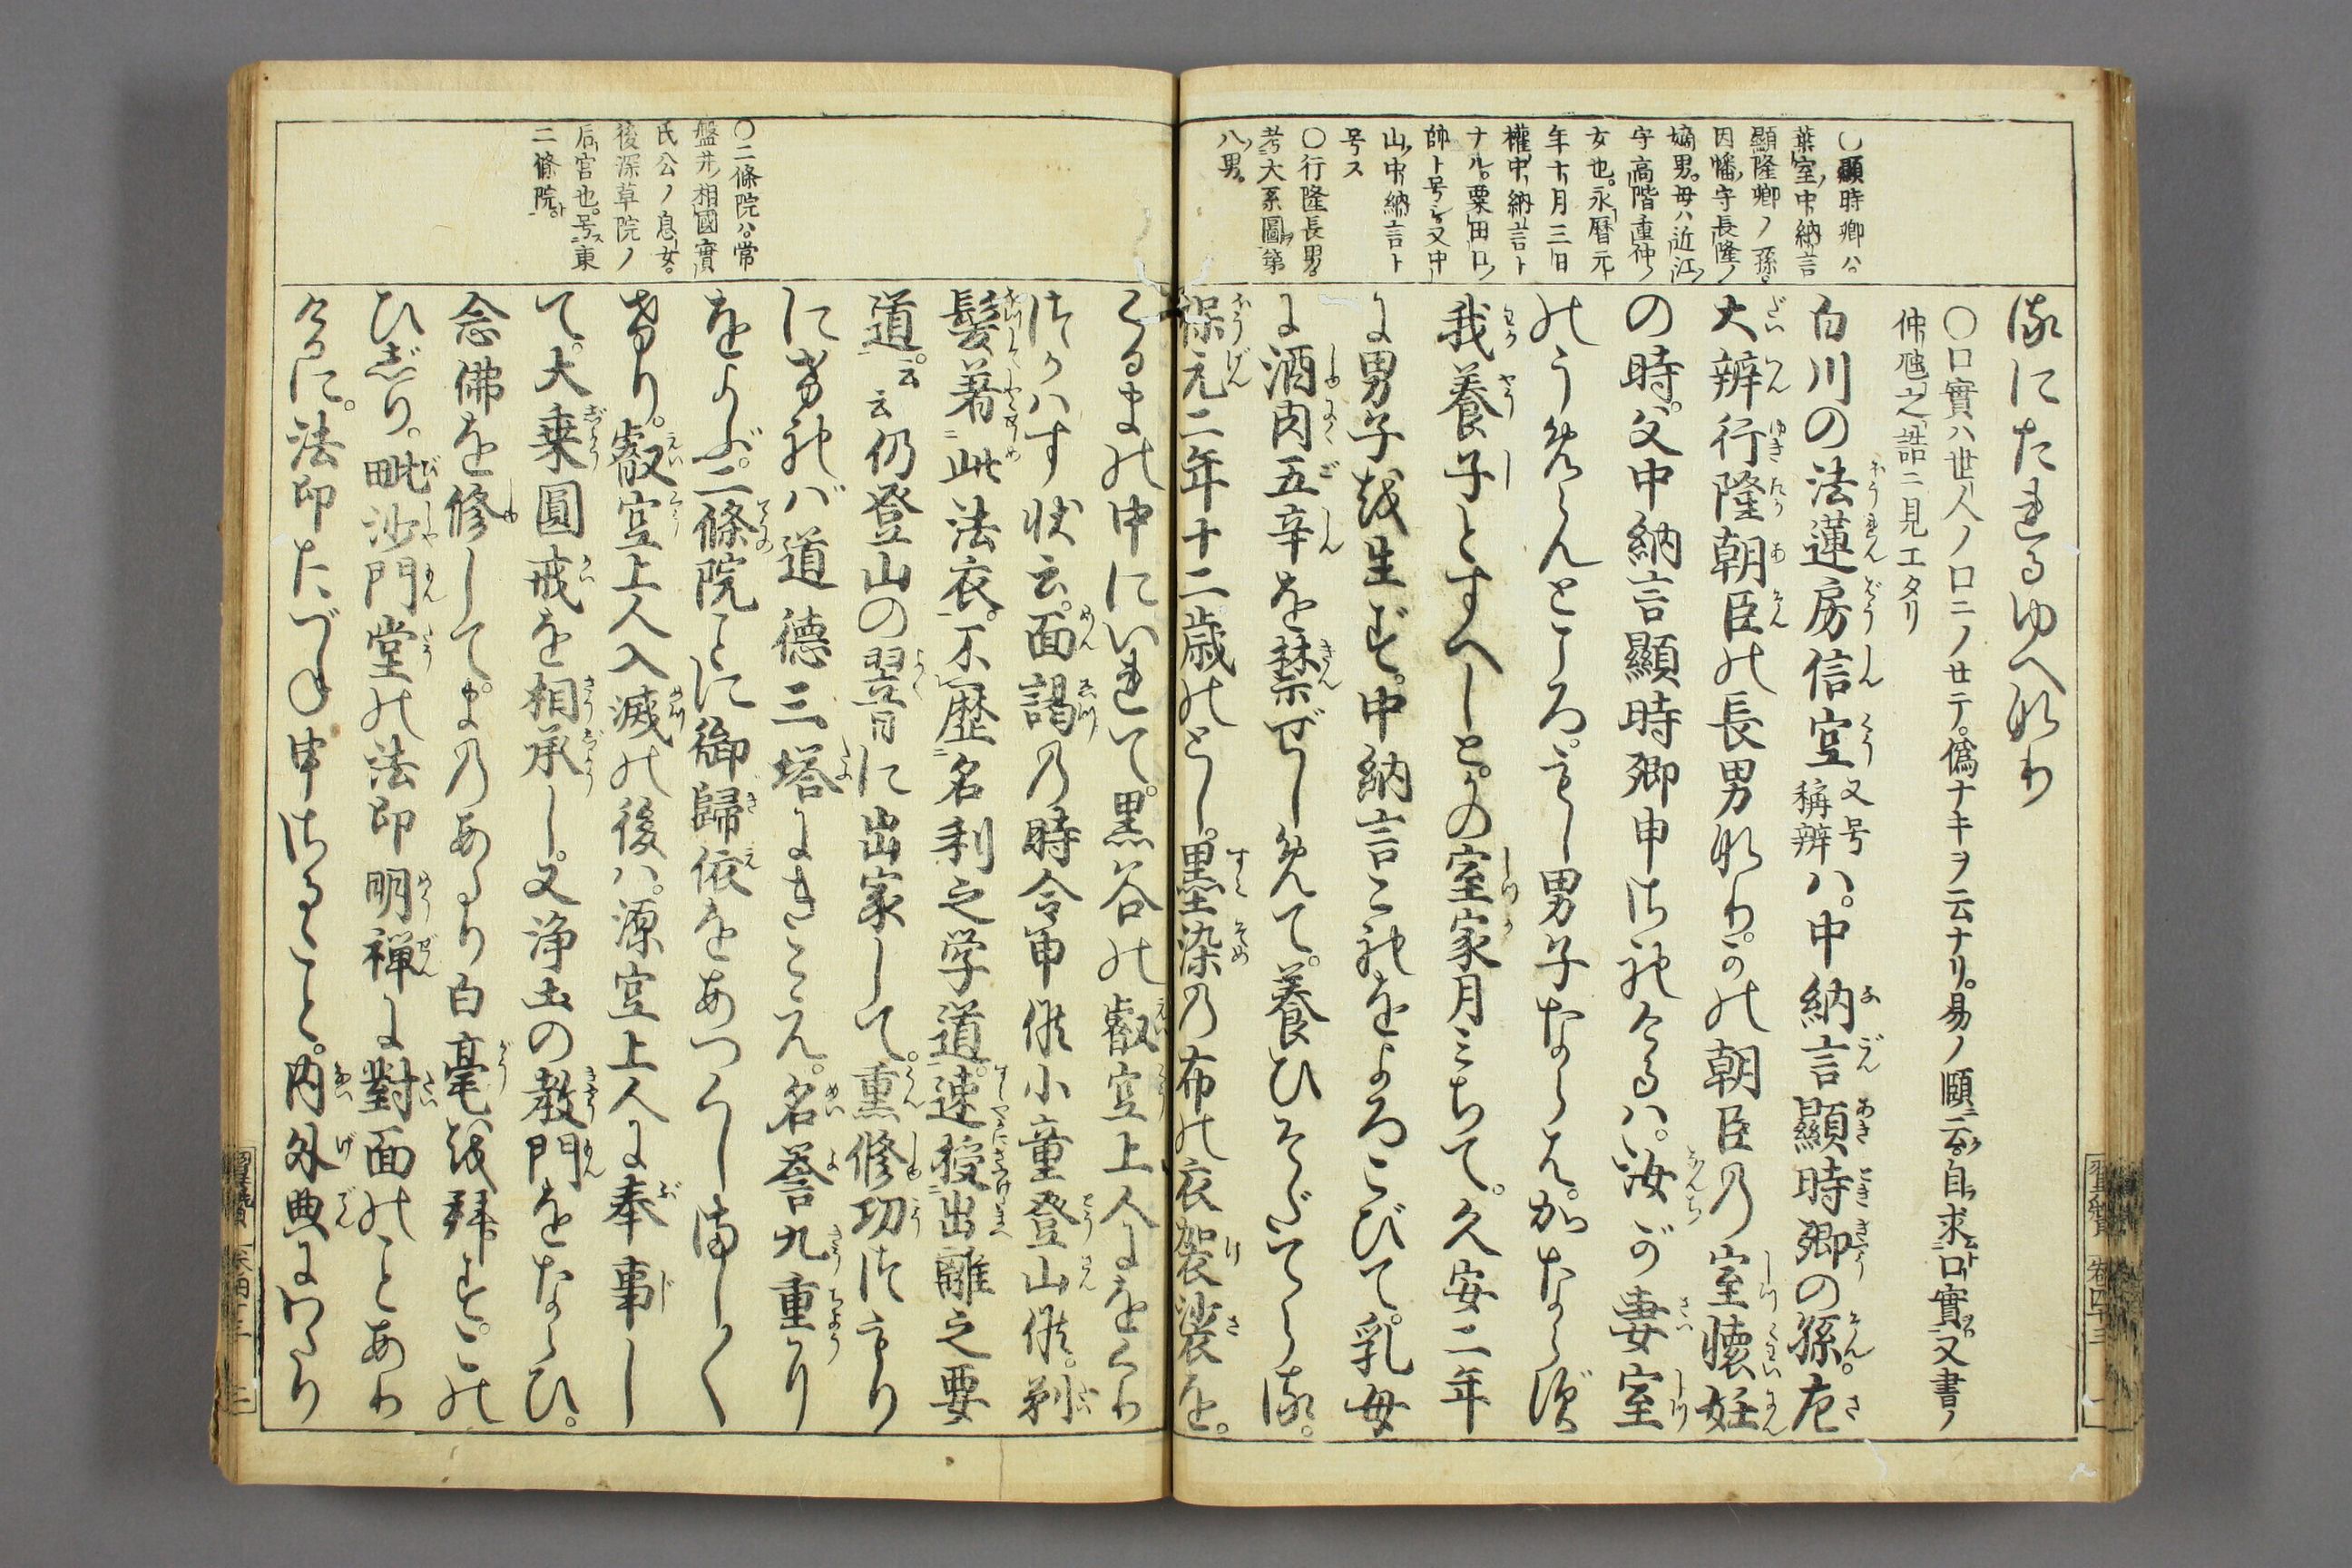 ○顯時卿ハ
葉室中納言
顯隆卿ノ孫
因幡守長隆ノ
嫡男。母ハ近江
守高階重仲ノ
女也。永曆元
年十月三日
權中納言ト
ナル。粟田口ノ
帥ト号シ又中
山中納言ト
号ス
○行隆長男
考大系圖第
八男。
侭にたれるゆへなり
○口實ハ世人ノ口ニノセテ。僞ナキヲ云ナリ。易ノ頤ニ云自求口實又書ノ
仲虺之誥ニ見エタリ
白川の法蓮房信空又号稱辨ハ。中納言顯時卿の孫。左
大辨行隆朝臣の長男なり。かの朝臣の室懷妊
の時。父中納言顯時卿申されけるハ。汝が妻室
のうめらんところ。もし男子ならは。かならず
我養子とすへしと。かの室家月みちて。久安二年
に男子を生ず。中納言これをよろこびて。乳母
に酒肉五辛を禁ぜしめて。養ひそだてらる。
保元二年十二歳のとし。墨染の布の衣袈裟を。
○二條院ハ常
盤井相國實
氏公ノ息女。
後深草院ノ
后宮也。号ス東
二條院ト
くるまの中にいれて。黒谷の叡空上人にをくり
つかハす状云。面謁の時令申候小童登山候。剃
髮著此法衣。不歷名利之学道。速授出離之要
道。云云仍登山の翌日に出家して。熏修功つもり
にければ道德三塔にきこえ。名誉九重かり
をよぶ。二條院ことに御歸依をあつくしましく
けり。叡空上人入滅の後ハ。源空上人に奉事し
て。大乗圓戒を相承し。又浄土の教門をならひ。
念佛を修してまのあたり白毫を拜す。この
ひじり。毗沙門堂の法印明禅に對面のことあり
けるに。法印たづね申さるること。内外典にわたり